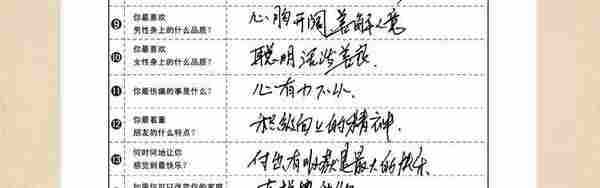 9 你最喜欢 男性身上的什么品质? 心胸开阔,善解人意
10 你最喜欢 女性身上的什么品质? 聪明活泼善良.
11 你最伤痛的事是什么? 心有力不从.
12 你最看重 朋友的什么特点? 积极向上的精神.
13 何时何地让你 感觉到最快乐? 付出有收获是最大的快乐